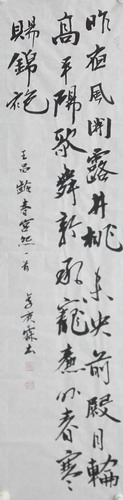 昨夜風開露井桃未央前殿月輪
高平陽歌舞新承寵簾外春寒
賜錦袍
王昌齡春宮怨一首
書